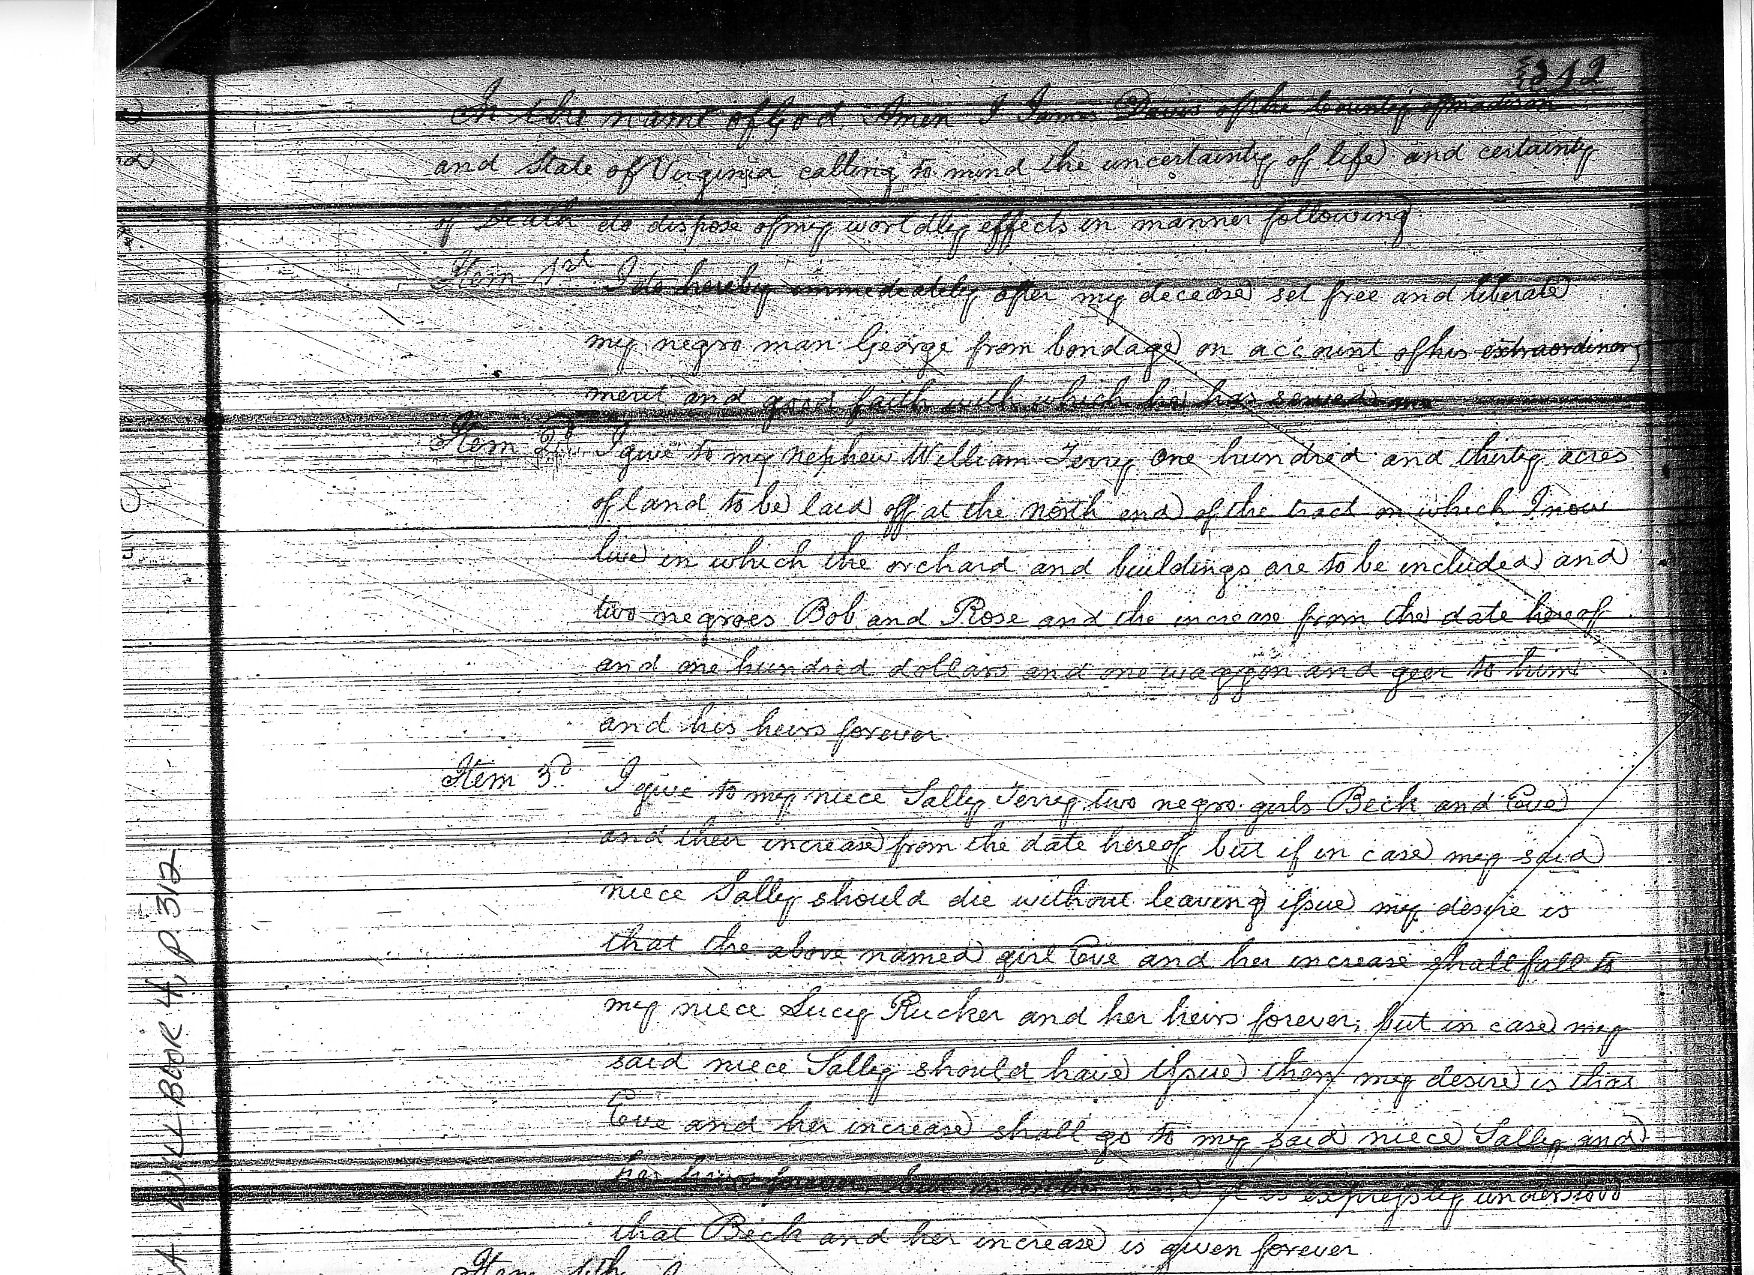 312
In the name of God Amen I James Davis of the County of Madison
and State of Virginia calling to mind the uncertainty of life and certainty
of Death do dispose of my worldly effects in manner following
Item 1st I do hereby immediately after my decease set free and liberate
my negro man George from bondage on account of his extraordinary
merit and good faith with which he has served me
Item 2d I give to my nephew William Terry one hundred and thirty acres
of land to be laid off at the north end of the tract on which I now
live in which the orchard and buildings are to be included and
two negroes Bob and Rose and the increase from the date hereof
and one hundred dollars and one waggon and geer to him
and his heirs forever
Item 3d I give to my niece Sally Terry two negro girls Beck and Eve
and their increase from the date hereof but if in case my said
niece Sally should die without leaving issue my desire is
that the above named girl Eve and her increase shall fall to
my niece Lucy Rucker and her heirs forever, but in case my
said niece Sally should have issue then my desire is that
Eve and her increase shall go to my said niece Sally and
her heirs forever but in either case it is expressly understood
that Beck and her increase is given forever
Item 4th I
WILL BOOK 4, P. 312